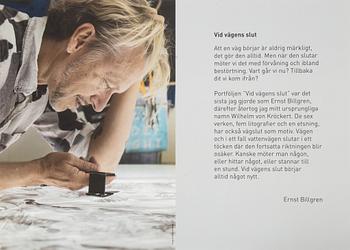 Vid vägens slut
Att en väg börjar är aldrig märkligt,
det gör den alltid. Men när den slutar
möter vi det med förvåning och ibland
bestörtning. Vart går vi nu? Tillbaka
dit vi kom ifrån?
Portföljen "Vid vägens slut" var det
sista jag gjorde som Ernst Billgren,
därefter återtog jag mitt ursprungliga
namn Wilhelm von Kröckert. De sex
verken, fem litografier och en etsning,
har också vägslut som motiv. Vägen
och i ett fall vattenvägen slutar i ett
töcken där den fortsatta riktningen blir
osäker. Kanske möter man någon,
eller hittar något, eller stannar till
en stund. Vid vägens slut börjar
alltid något nytt.
Ernst Billgren